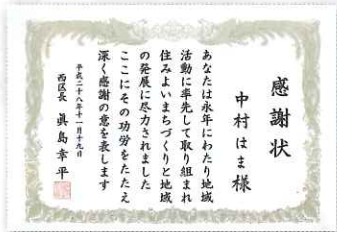 感謝状
中村はま様
あなたは永年にわたり地域
活動に率先して取り組まれ
住みよいまちづくりと地域
の発展に尽力されました
ここにその功労をたたえ
深く感謝の意を表します
平成二十八年十一月十九日
西区長 眞島幸平